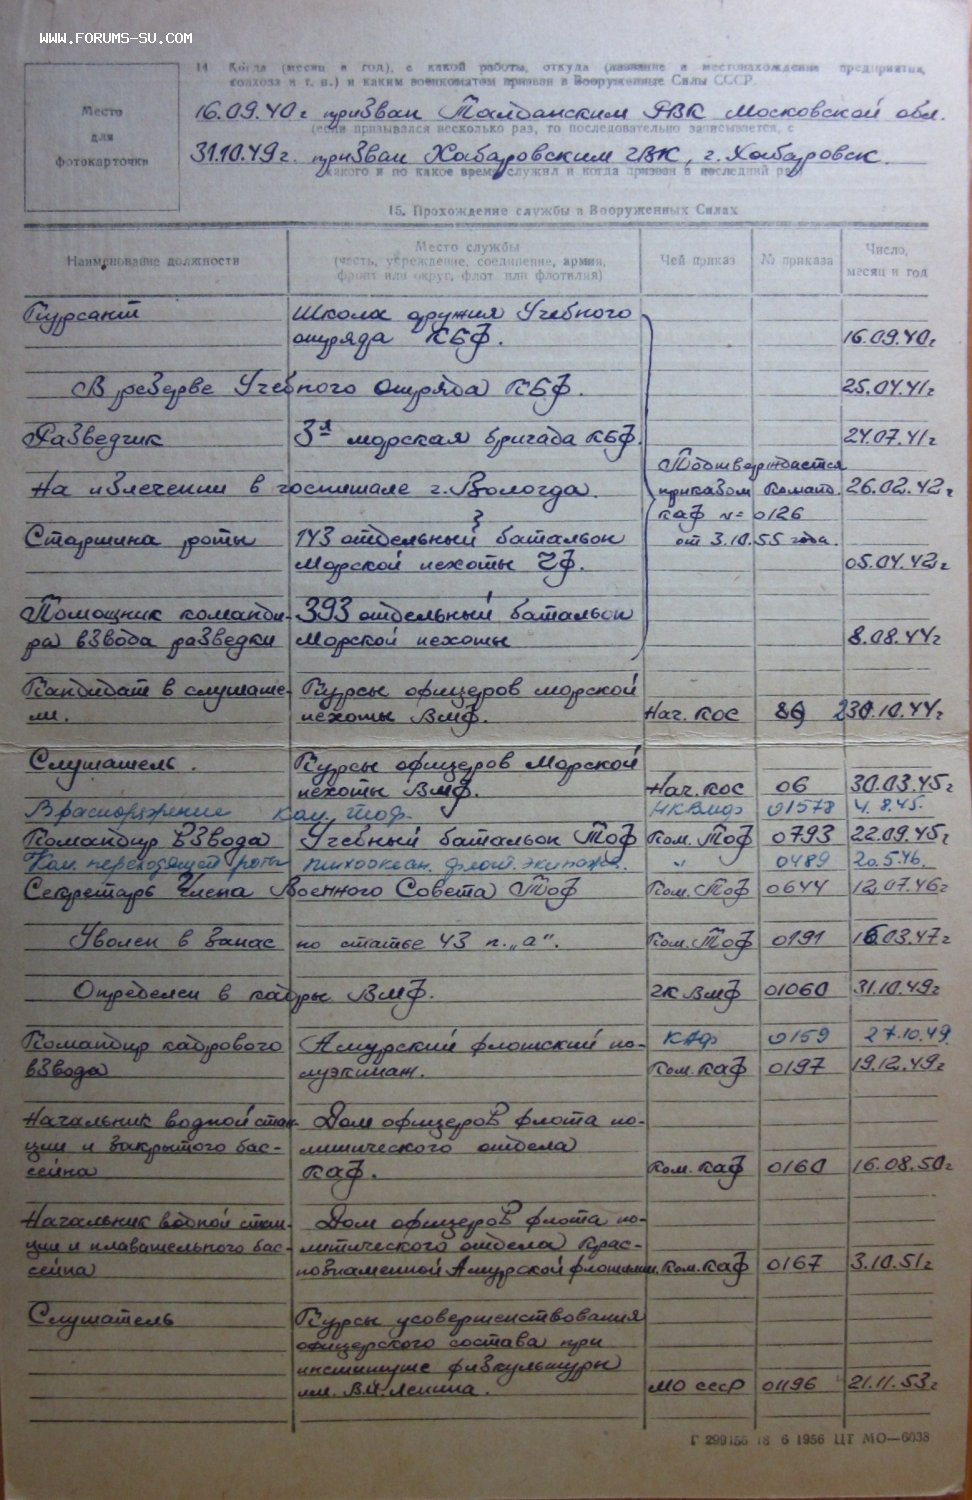 WWW.FORUMS-SU.COM
Место
для
фотокарточки
14 Когда (месяц и год), с какой работы, откуда (название и местонахождение предприятия,
колхоза и т. п.) и каким военкоматом призван в Вооруженные Силы СССР.
16.09.40 г призван Талданским РВК Московской обл.
(если призывался несколько раз, то последовательно записывается, с
31.10.49 г. призван Хабаровским ГВК, г. Хабаровск.
какого и по какое время служил и когда призван в последний раз)
15. Прохождение службы в Вооруженных Силах
Наименование должности
Место службы
(часть, учреждение, соединение, армия,
фронт или округ, флот или флотилия)
Чей приказ
№ приказа
Число,
месяц и год
Курсант Школа оружия Учебного
отряда КБФ. 16.09.40 г
В резерве Учебного отряда КБФ. 25.04.41 г
Разведчик 3я морская бригада КБФ. 24.07.41 г
Подтверждается
На излечении в госпитале г. Вологда. приказом Команд. 26.02.42 г
КАФ № 0126
Старшина роты 143 отдельный батальон от 3.10.55 года.
Морской пехоты ЧФ. 05.04.42 г
Помощник команди- 393 отдельный батальон
ра взвода разведки Морской пехоты 8.08.44 г
Кандидат в слушате- Курсы офицеров морской
ли. пехоты ВМФ. Нач. КОС 30.10.44 г
Слушатель. Курсы офицеров Морской
пехоты ВМФ. Нач. КОС 06 30.03.45 г
В распоряжение Ком. ТОФ. НКВМФ 01578 4.8.45.
Командир взвода Учебный батальон ТОФ Ком. ТОФ 0793 22.09.45 г
Ком. переходящей роты Тихоокеан. флот. экипажа. " 0489 20.5.46.
Секретарь Члена Военного Совета ТОФ Ком. ТОФ 0644 12.07.46 г
Уволен в запас по статье 43 п. „а“. Ком. ТОФ 0191 16.03.47 г
Определен в кадры ВМФ. ГК ВМФ 01060 31.10.49 г
Командир кадрового Амурский флотский по- КАФ 0159 27.10.49
взвода луэкипаж. Ком. КАФ 0197 19.12.49 г
Начальник водной стан- Дом офицеров флота по-
ции и закрытого бас- литического отдела
сейна КАФ. Ком. КАФ 0160 16.08.50 г
Начальник водной стан- Дом офицеров флота по-
ции и плавательного бас- литического отдела Крас-
сейна нознаменной Амурской флотилии. Ком. КАФ 0167 3.10.51 г
Слушатель Курсы усовершенствования
офицерского состава при
институте физкультуры
им. В.И. Ленина. МО СССР 01196 21.11.53 г
Г 299156 18 6 1956 ЦТ МО—6038